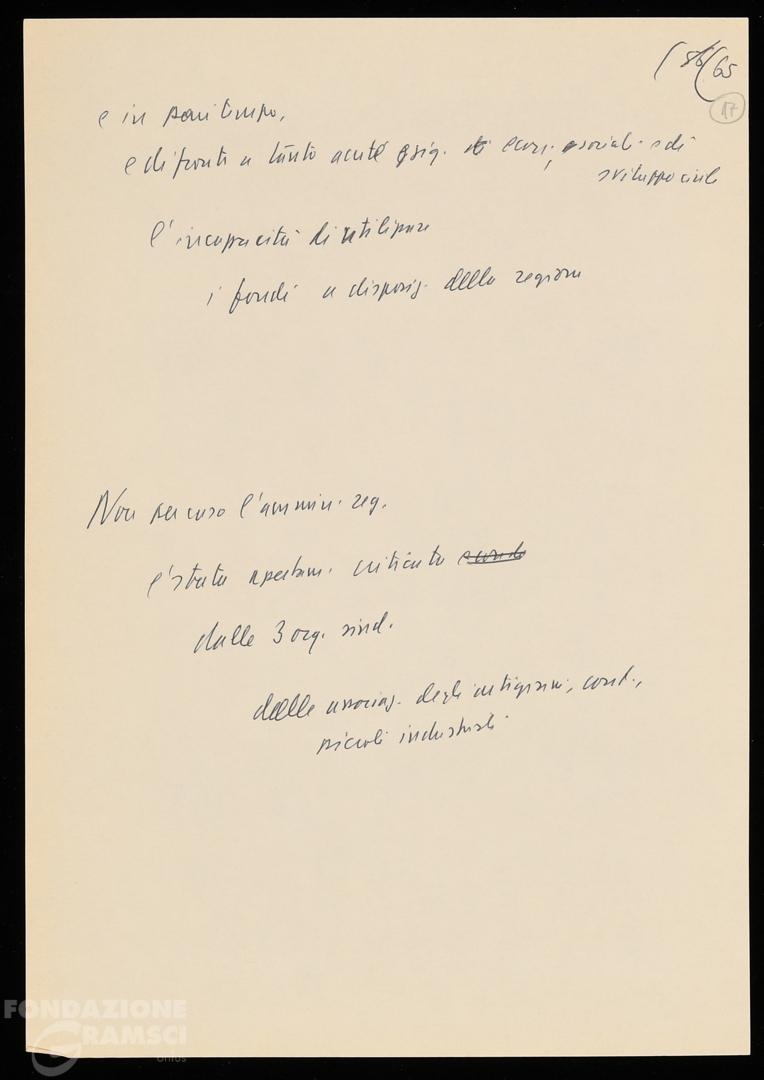 65
17
e in pari tempo,
e di fronte a tanto acute esig. econ., e sociali e di
sviluppo civile
l'incapacità di utilizzare
i fondi a disposiz. della regione
Non per caso l'ammin. reg.
è stata apertam. criticata
dalle 3 org. sind.
dalle associaz. degli artigiani, cont.,
piccoli industriali
FONDAZIONE
GRAMSCI
onlus